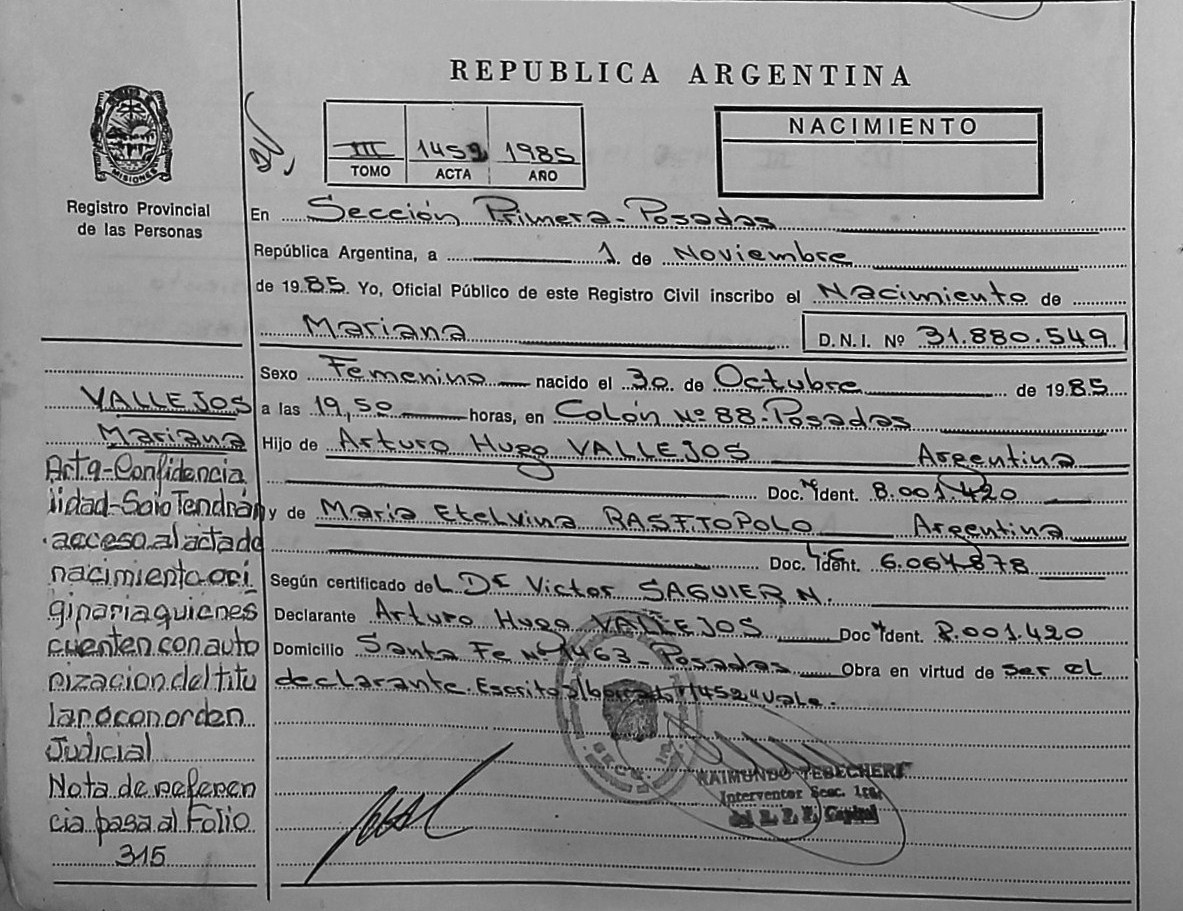 REPUBLICA ARGENTINA
MISIONES
Registro Provincial
de las Personas
III 1459 1985
TOMO ACTA AÑO
NACIMIENTO
En Sección Primera-Posadas
República Argentina, a 1 de Noviembre
de 1985. Yo, Oficial Público de este Registro Civil inscribo el Nacimiento de
Mariana D.N.I. Nº 31.880.549
Sexo Femenino nacido el 30 de Octubre de 1985
a las 19,50 horas, en Colón Nº 88-Posadas
Hijo de Arturo Hugo VALLEJOS Argentina
Doc. Ident. 8.001.420
y de María Etelvina Argentina
Doc. Ident. 6.064.878
Según certificado del Dr Victor SAGUIER M.
Declarante Arturo Hugo VALLEJOS Doc Ident. 8.001.420
Domicilio Santa Fe Nº 1463-Posadas Obra en virtud de ser el
declarante. Escrito "1452" vale.
RAIMUNDO
Interventor Secc. 1ra.
Capital
VALLEJOS
Mariana
Acta-Confidencia
lidad-Solo Tendrán
acceso al acta de
nacimiento ori
ginaria quienes
cuenten con auto
rizacion del titu
lar o con orden
Judicial
Nota de referen
cia pasa al Folio
315